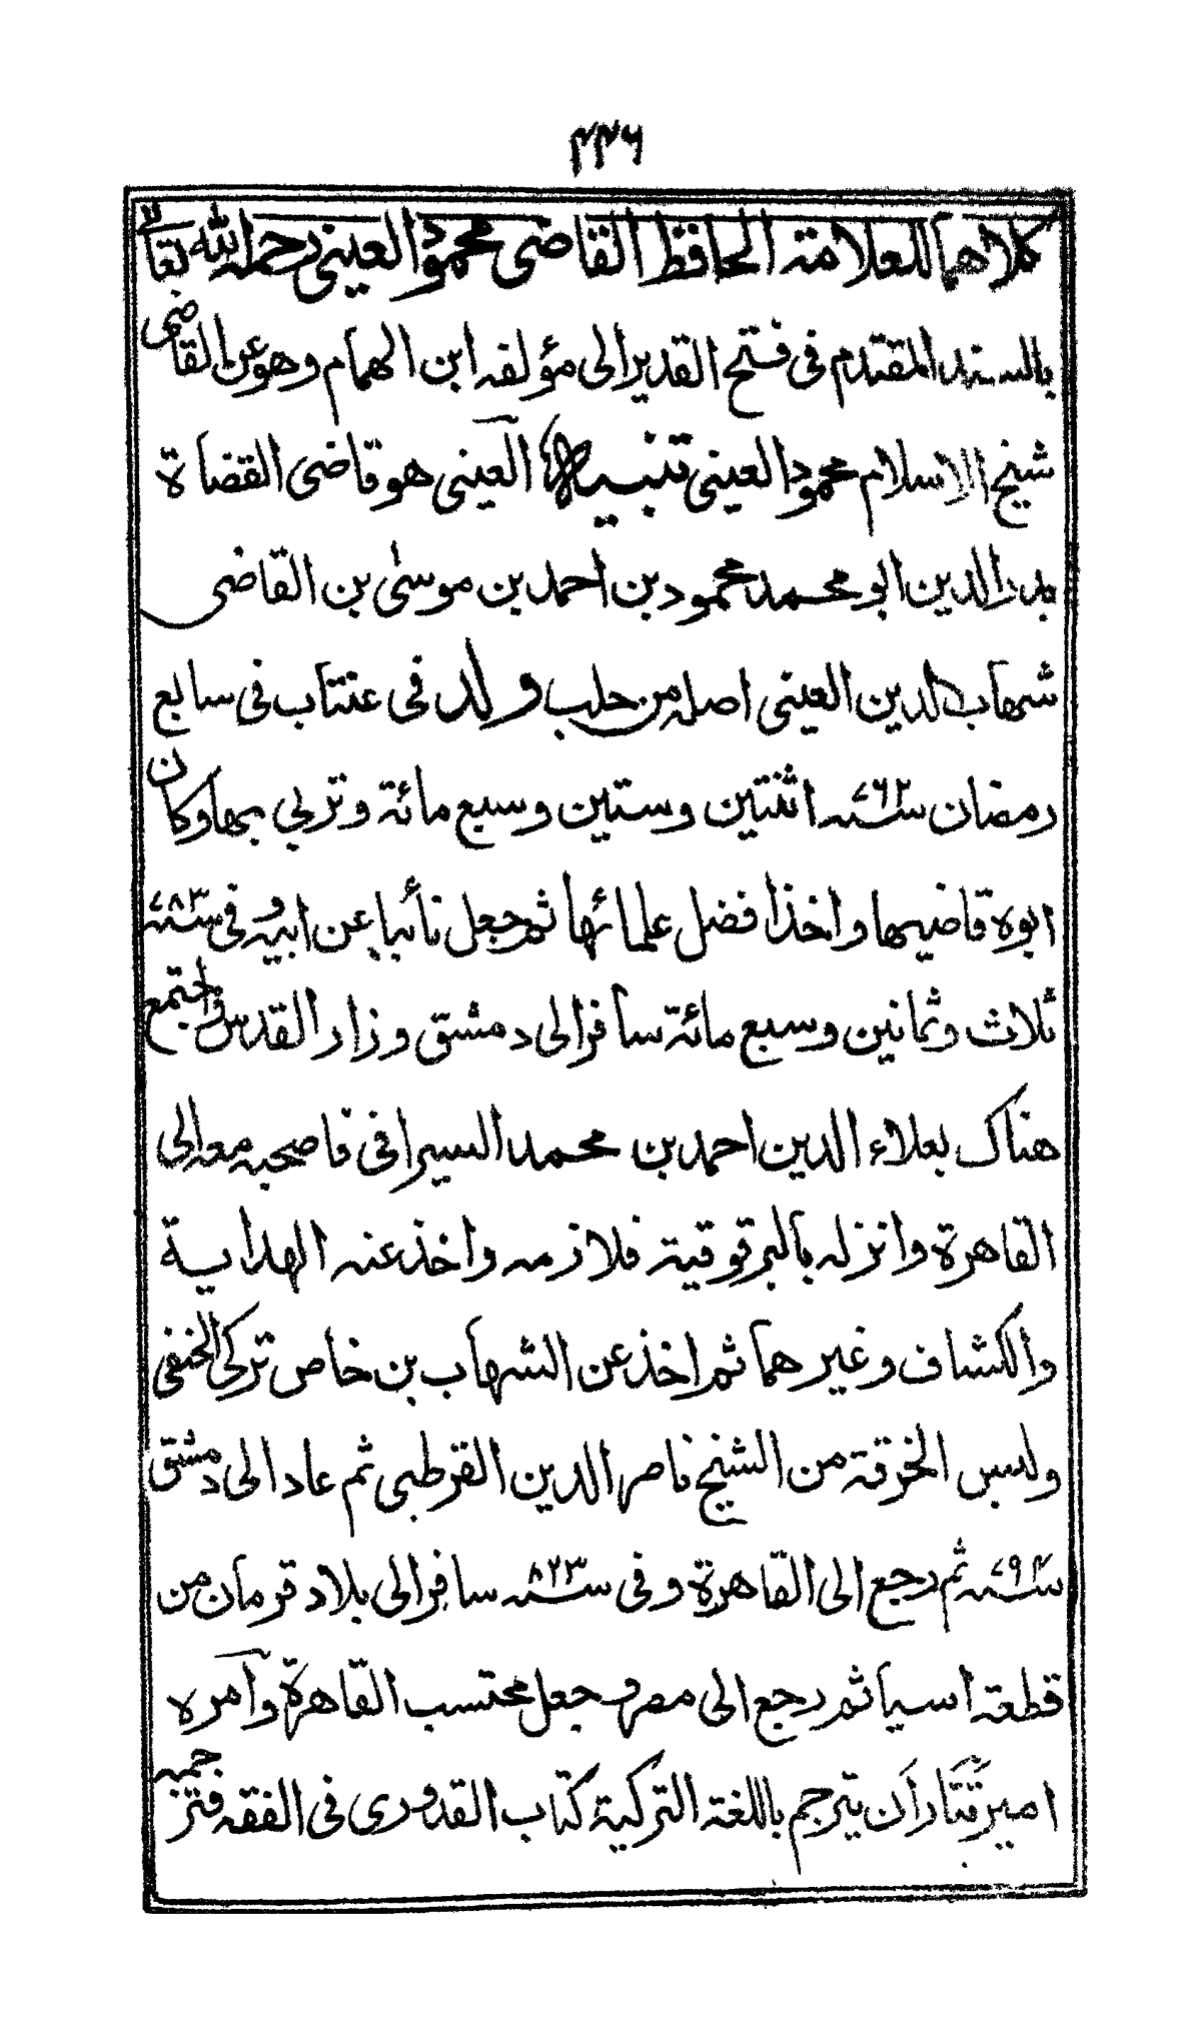 ٤٤٦
كلاهما للعلامة الحافظ القاضى محمود العينى رحمه الله تعالى
بالسند المتقدم فى فتح القدير الى مؤلفه ابن الهمام وهو عن القاضى
شيخ الاسلام محمود العينى تنبيه العينى هو قاضى القضاة
بدر الدين ابو محمد محمود بن احمد بن موسى بن القاضى
شهاب الدين العينى اصله من حلب ولد فى عنتاب فى سابع
رمضان سنة ٧٦٢ اثنتين وستين وسبع مائة وتربى بها وكان
ابوه قاضيها واخذ افضل علمائها ثم جعل نائبا عن ابيه وفى سنة ٧٨٣
ثلاث وثمانين وسبع مائة سافر الى دمشق وزار القدس واجتمع
هناك بعلاء الدين احمد بن محمد السيرافى فاصحبه معه الى
القاهرة وانزله بالبرقوقية فلازمه واخذ عنه الهداية
والكشاف وغيرهما ثم اخذ عن الشهاب بن خاص تركى الحنفى
ولبس الخرقة من الشيخ ناصر الدين القرطبى ثم عاد الى دمشق
سنة ٧٩٤ ثم رجع الى القاهرة وفى سنة ٨٢٣ سافر الى بلاد قرمان من
قطعة اسيا ثم رجع الى مصر وجعل محتسب القاهرة وآمره
امير تتار ان يترجم باللغة التركية كتاب القدورى فى الفقه فترجمه